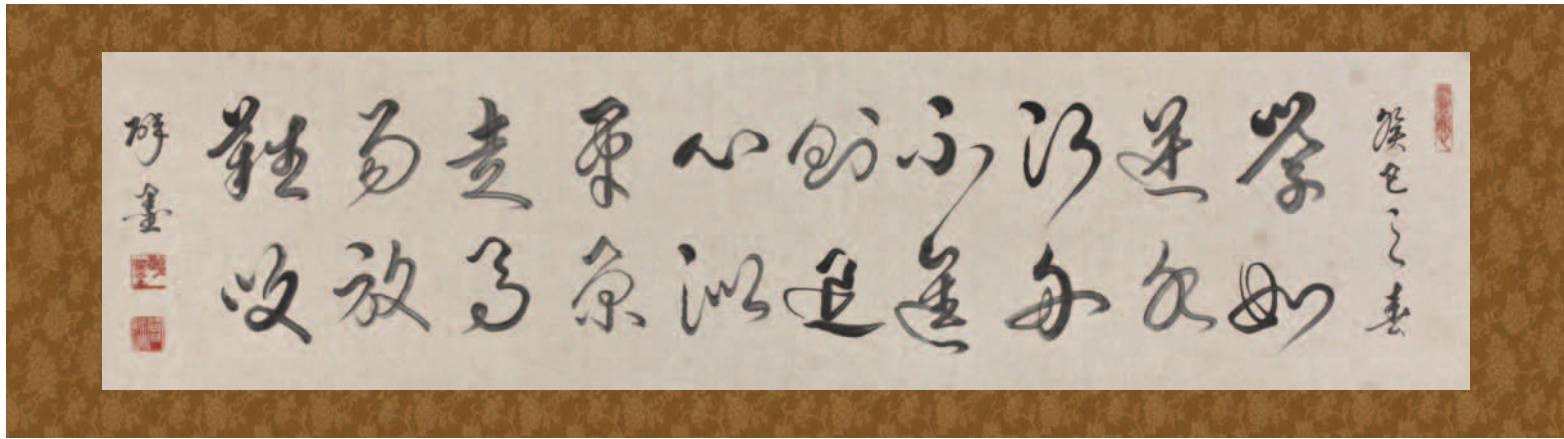 癸巳之春
學如
逆水
行舟
不進
則退
心似
平原
走馬
易放
難收